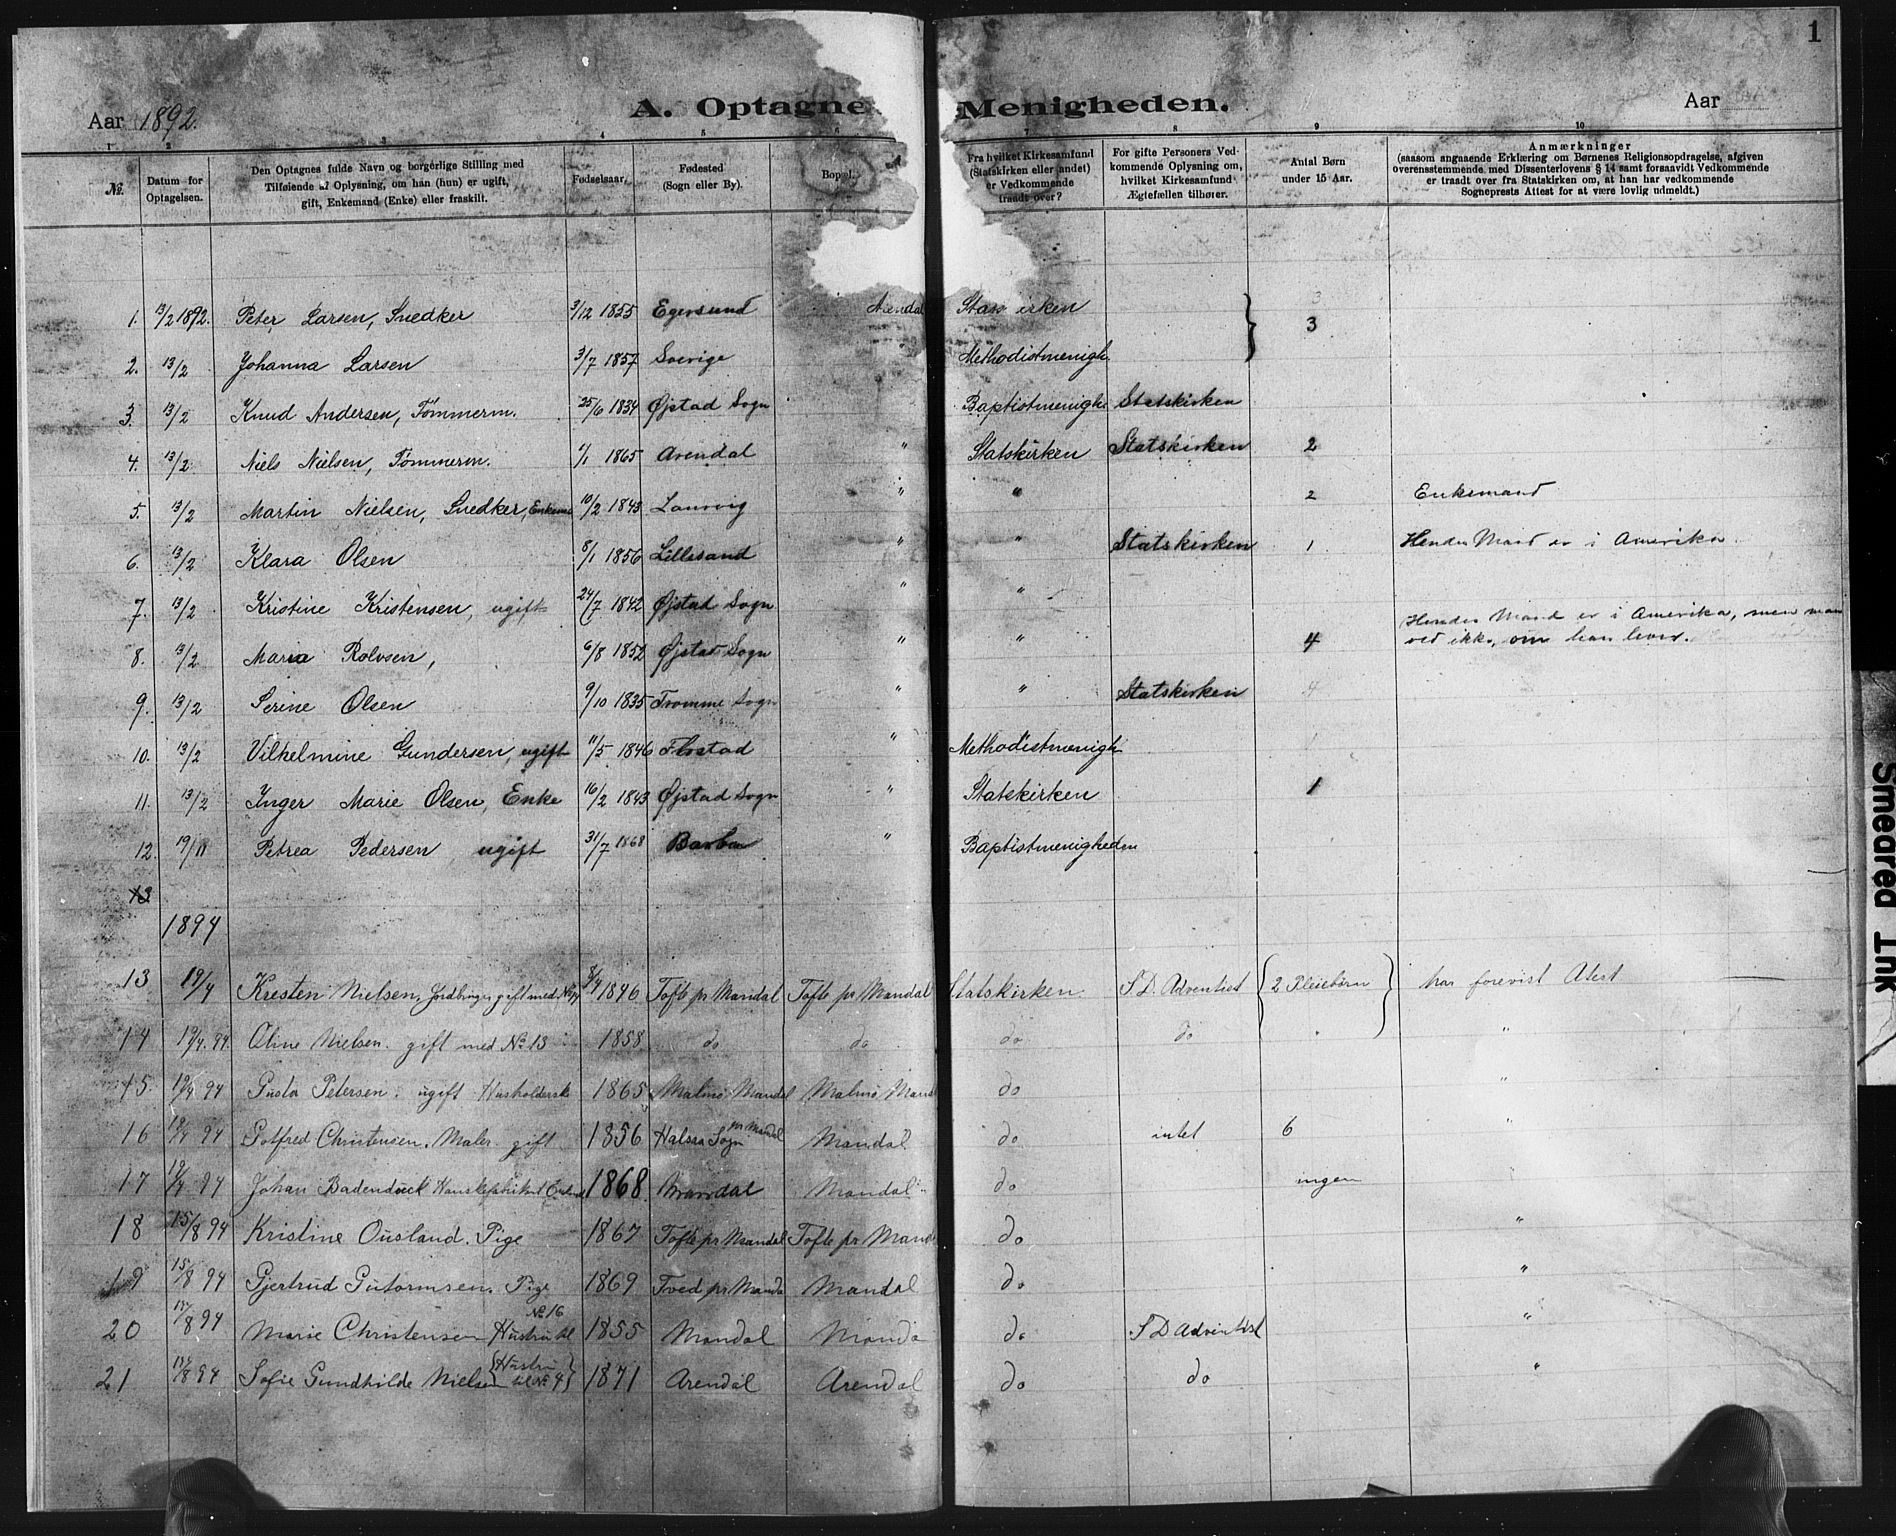 1
Aar 1892. A. Optagne Menigheden. Aar
1 2 3 4 5 6 7 8 9 10
No. Datum for Optagelsen. Den Optagnes fulde Navn og borgerlige Stilling med Tilføiende af Oplysning, om han (hun) er ugift, gift, Enkemand (Enke) eller fraskilt. Fødselsaar. Fødested (Sogn eller By). Bopæl. Fra hvilket Kirkesamfund (Statskirken eller andet) er Vedkommende traadt over? For gifte Personers Vedkommende Oplysning om, hvilket Kirkesamfund Ægtefællen tilhører. Antal Børn under 15 Aar. Anmærkninger (saasom angaaende Erklæring om Børnenes Religionsopdragelse, afgiven overensstemmende med Dissenterlovens § 14 samt forsaavidt Vedkommende er traadt over fra Statskirken om, at han har vedkommende Sogneprests Attest for at være lovlig udmeldt.)
1. 13/2 1892. Peter Larsen, Snedker 3/12 1855 Egersund Arendal Stats irken } 3
2. 13/2 Johanna Larsen 3/7 1857 Sverige " Methodistmenigh.
3. 13/2 Knud Andersen, Tømmerm. 25/6 1834 Øjstad Sogn Baptistmenigh Statskirken
4. 13/2 Niels Nielsen, Tømmerm. 1/1 1865 Arendal " Statskirken Statskirken 2
5. 13/2 Martin Nielsen, Snedker, Enkem 10/2 1843 Laurvig " " 2 Enkemand
6. 13/2 Klara Olsen 8/1 1856 Lillesand " " Statskirken 1 Hendes Mand er i Amerika.
7. 13/2 Kristine Kristensen, ugift 24/7 1842 Øjstad Sogn " "
8. 13/2 Maria Rolvsen, 6/8 1852 Øjstad Sogn " " 4 Hendes Mand er i Amerika, men man ved ikke, om han lever.
9. 13/2 Serine Olsen 9/10 1835 Tromme Sogn " " Statskirken
10. 13/2 Vilhelmine Gundersen, ugift 11/5 1846 Flostad " Methodistmenigh
11. 13/2 Inger Marie Olsen, Enke 16/2 1843 Øjstad Sogn " Statskirken 1
12. 19/11 Petrea Pedersen, ugift 31/7 1868 Barbu " Baptistmenigheden
13
1894
13 19/4 Kresten Nielsen, Jordbruger gift med No 14 8/4 1846 Tofte pr Mandal Tofte pr Mandal Statskirken. S. D. Adventist { 2 Pleiebørn } har forevist Atest
14 19/4. 94. Oline Nielsen. gift med No 13 1858 do do do do " "
15. 19/4 94 Gusta Petersen. ugift Husholderske 1865 Malmø Mandal Malmø Mand do "
16 19/4 94 Gotfred Christensen. Maler gift 1856 Halsaa Sogn pr Mandal Mandal do intet 6 "
17 19/4 94 Johan Badenduck Hanskefabrikant 1868. Mandal Mandal do ingen
18 15/8 94 Kristine Ousland. Pige 1867 Tofte pr Mandal Tofte pr Mand do "
19 15/8 94 Gjertrud Gutormsen. Pige 1869 Tved pr Manda Mandal do "
20 15/8 94 Marie Christensen Hustru til No 16 1855 Mandal Manda do S D Adventist "
21 15/8 94 Sofie Gundhilde Nielsen {Hustru til No 4} 1871 Arendal Arendal do do "
Smeared Ink